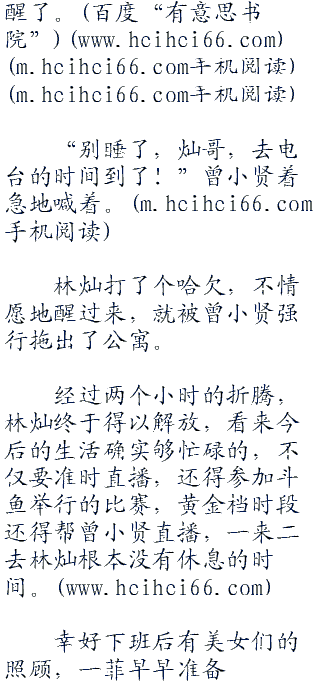 醒了。(百度“有意思书
院”)(www.hcihci66.com)
(m.hcihci66.com手机阅读)
(m.hcihci66.com手机阅读)
“别睡了，灿哥，去电
台的时间到了！”曾小贤着
急地喊着。(m.hcihci66.com
手机阅读)
林灿打了个哈欠，不情
愿地醒过来，就被曾小贤强
行拖出了公寓。
经过两个小时的折腾，
林灿终于得以解放，看来今
后的生活确实够忙碌的，不
仅要准时直播，还得参加斗
鱼举行的比赛，黄金档时段
还得帮曾小贤直播，一来二
去林灿根本没有休息的时
间。(www.hcihci66.com)
幸好下班后有美女们的
照顾，一菲早早准备